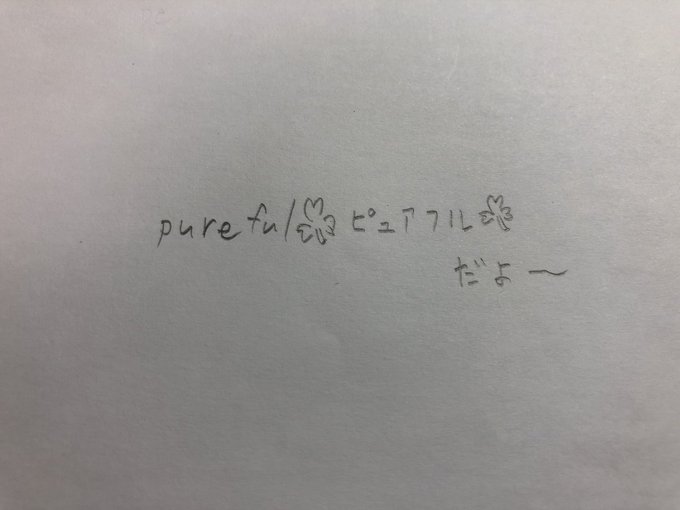 pureful🍀ピュアフル🍀
だよ〜